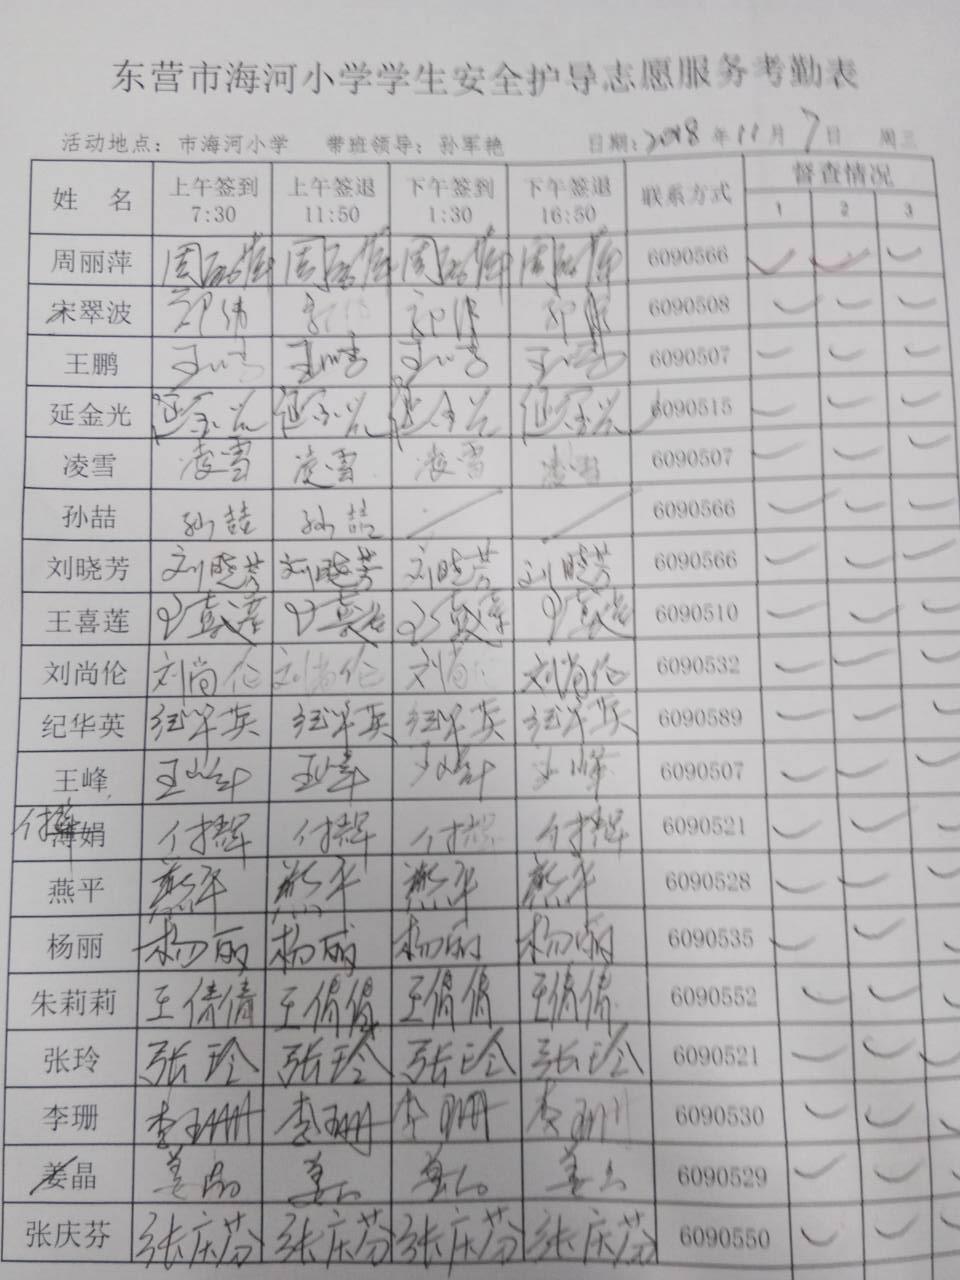 东营市海河小学学生安全护导志愿服务考勤表
活动地点：市海河小学 带班领导：孙军艳 日期：2018年11月7日 周三
姓 名 上午签到 7:30 上午签退 11:50 下午签到 1:30 下午签退 16:50 联系方式 督查情况 1 2 3
周丽萍 周丽萍 周丽萍 周丽萍 周丽萍 6090566
宋翠波 6090508
王鹏 6090507
延金光 延金光 延金光 延金光 延金光 6090515
凌雪 凌雪 凌雪 凌雪 凌雪 6090507
孙喆 孙喆 孙喆 6090566
刘晓芳 刘晓芳 刘晓芳 刘晓芳 刘晓芳 6090566
王喜莲 6090510
刘尚伦 刘尚伦 刘尚伦 刘尚 刘尚伦 6090532
纪华英 纪华英 纪华英 纪华英 纪华英 6090589
王峰 王峰 王峰 王峰 王峰 6090507
薄娟 6090521
燕平 燕平 燕平 燕平 燕平 6090528
杨丽 杨丽 杨丽 杨丽 杨丽 6090535
朱莉莉 王倩倩 王倩倩 王倩倩 王倩倩 6090552
张玲 张玲 张玲 张玲 张玲 6090521
李珊 李珊 李珊 李珊 李珊 6090530
姜晶 姜晶 姜晶 姜晶 姜晶 6090529
张庆芬 张庆芬 张庆芬 张庆芬 张庆芬 6090550